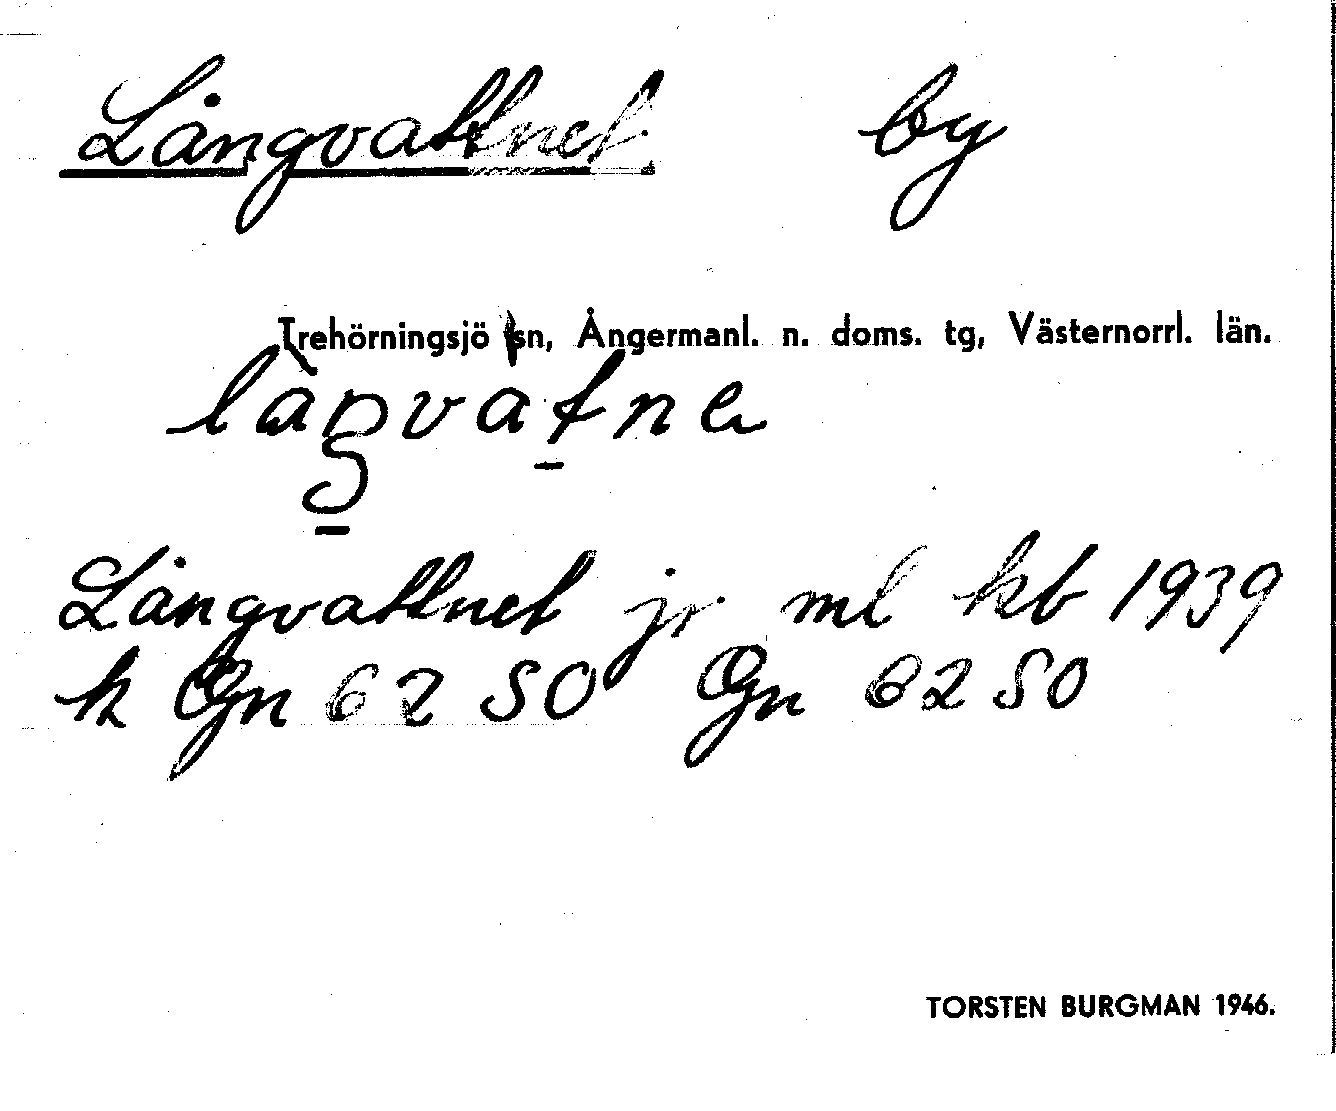 Långvattnet by
Trehörningsjö sn, Ångermanl. n. doms. tg, Västernorrl. län.
Långvattnet jr ml kb 1939
k Ögn 6250 Ögn 6250
TORSTEN BURGMAN 1946.